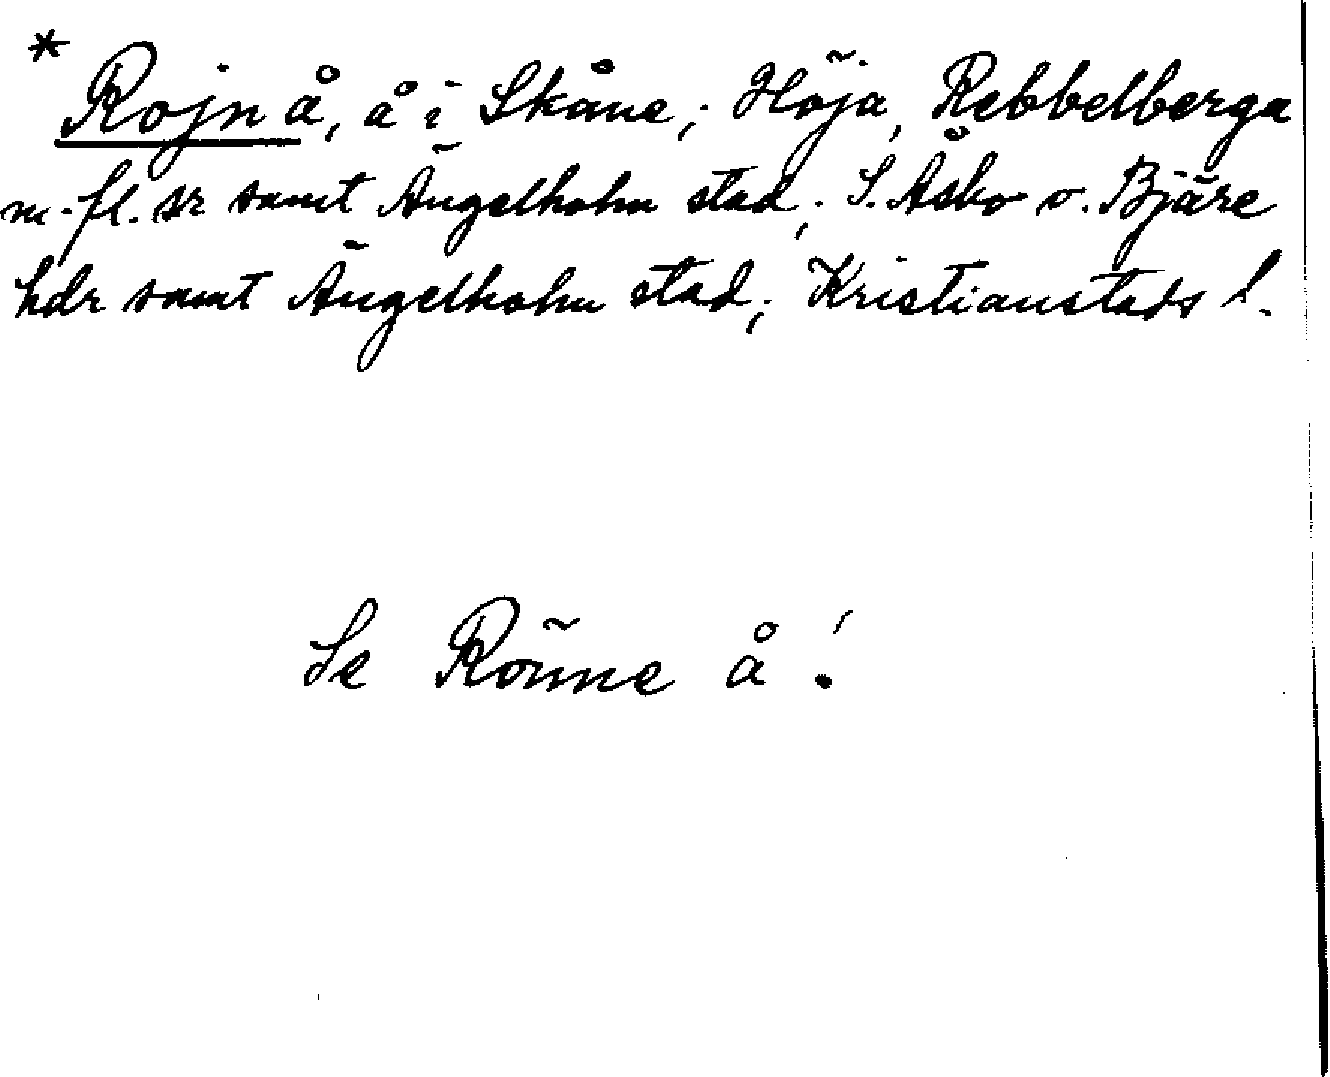 * Rojn å, å i Skåne; Höja, Rebbelberga
m. fl. sr samt Ängelholm stad; S. Åsbo o. Bjäre
hdr samt Ängelholm stad; Kristianstads l.
Se Rönne å!